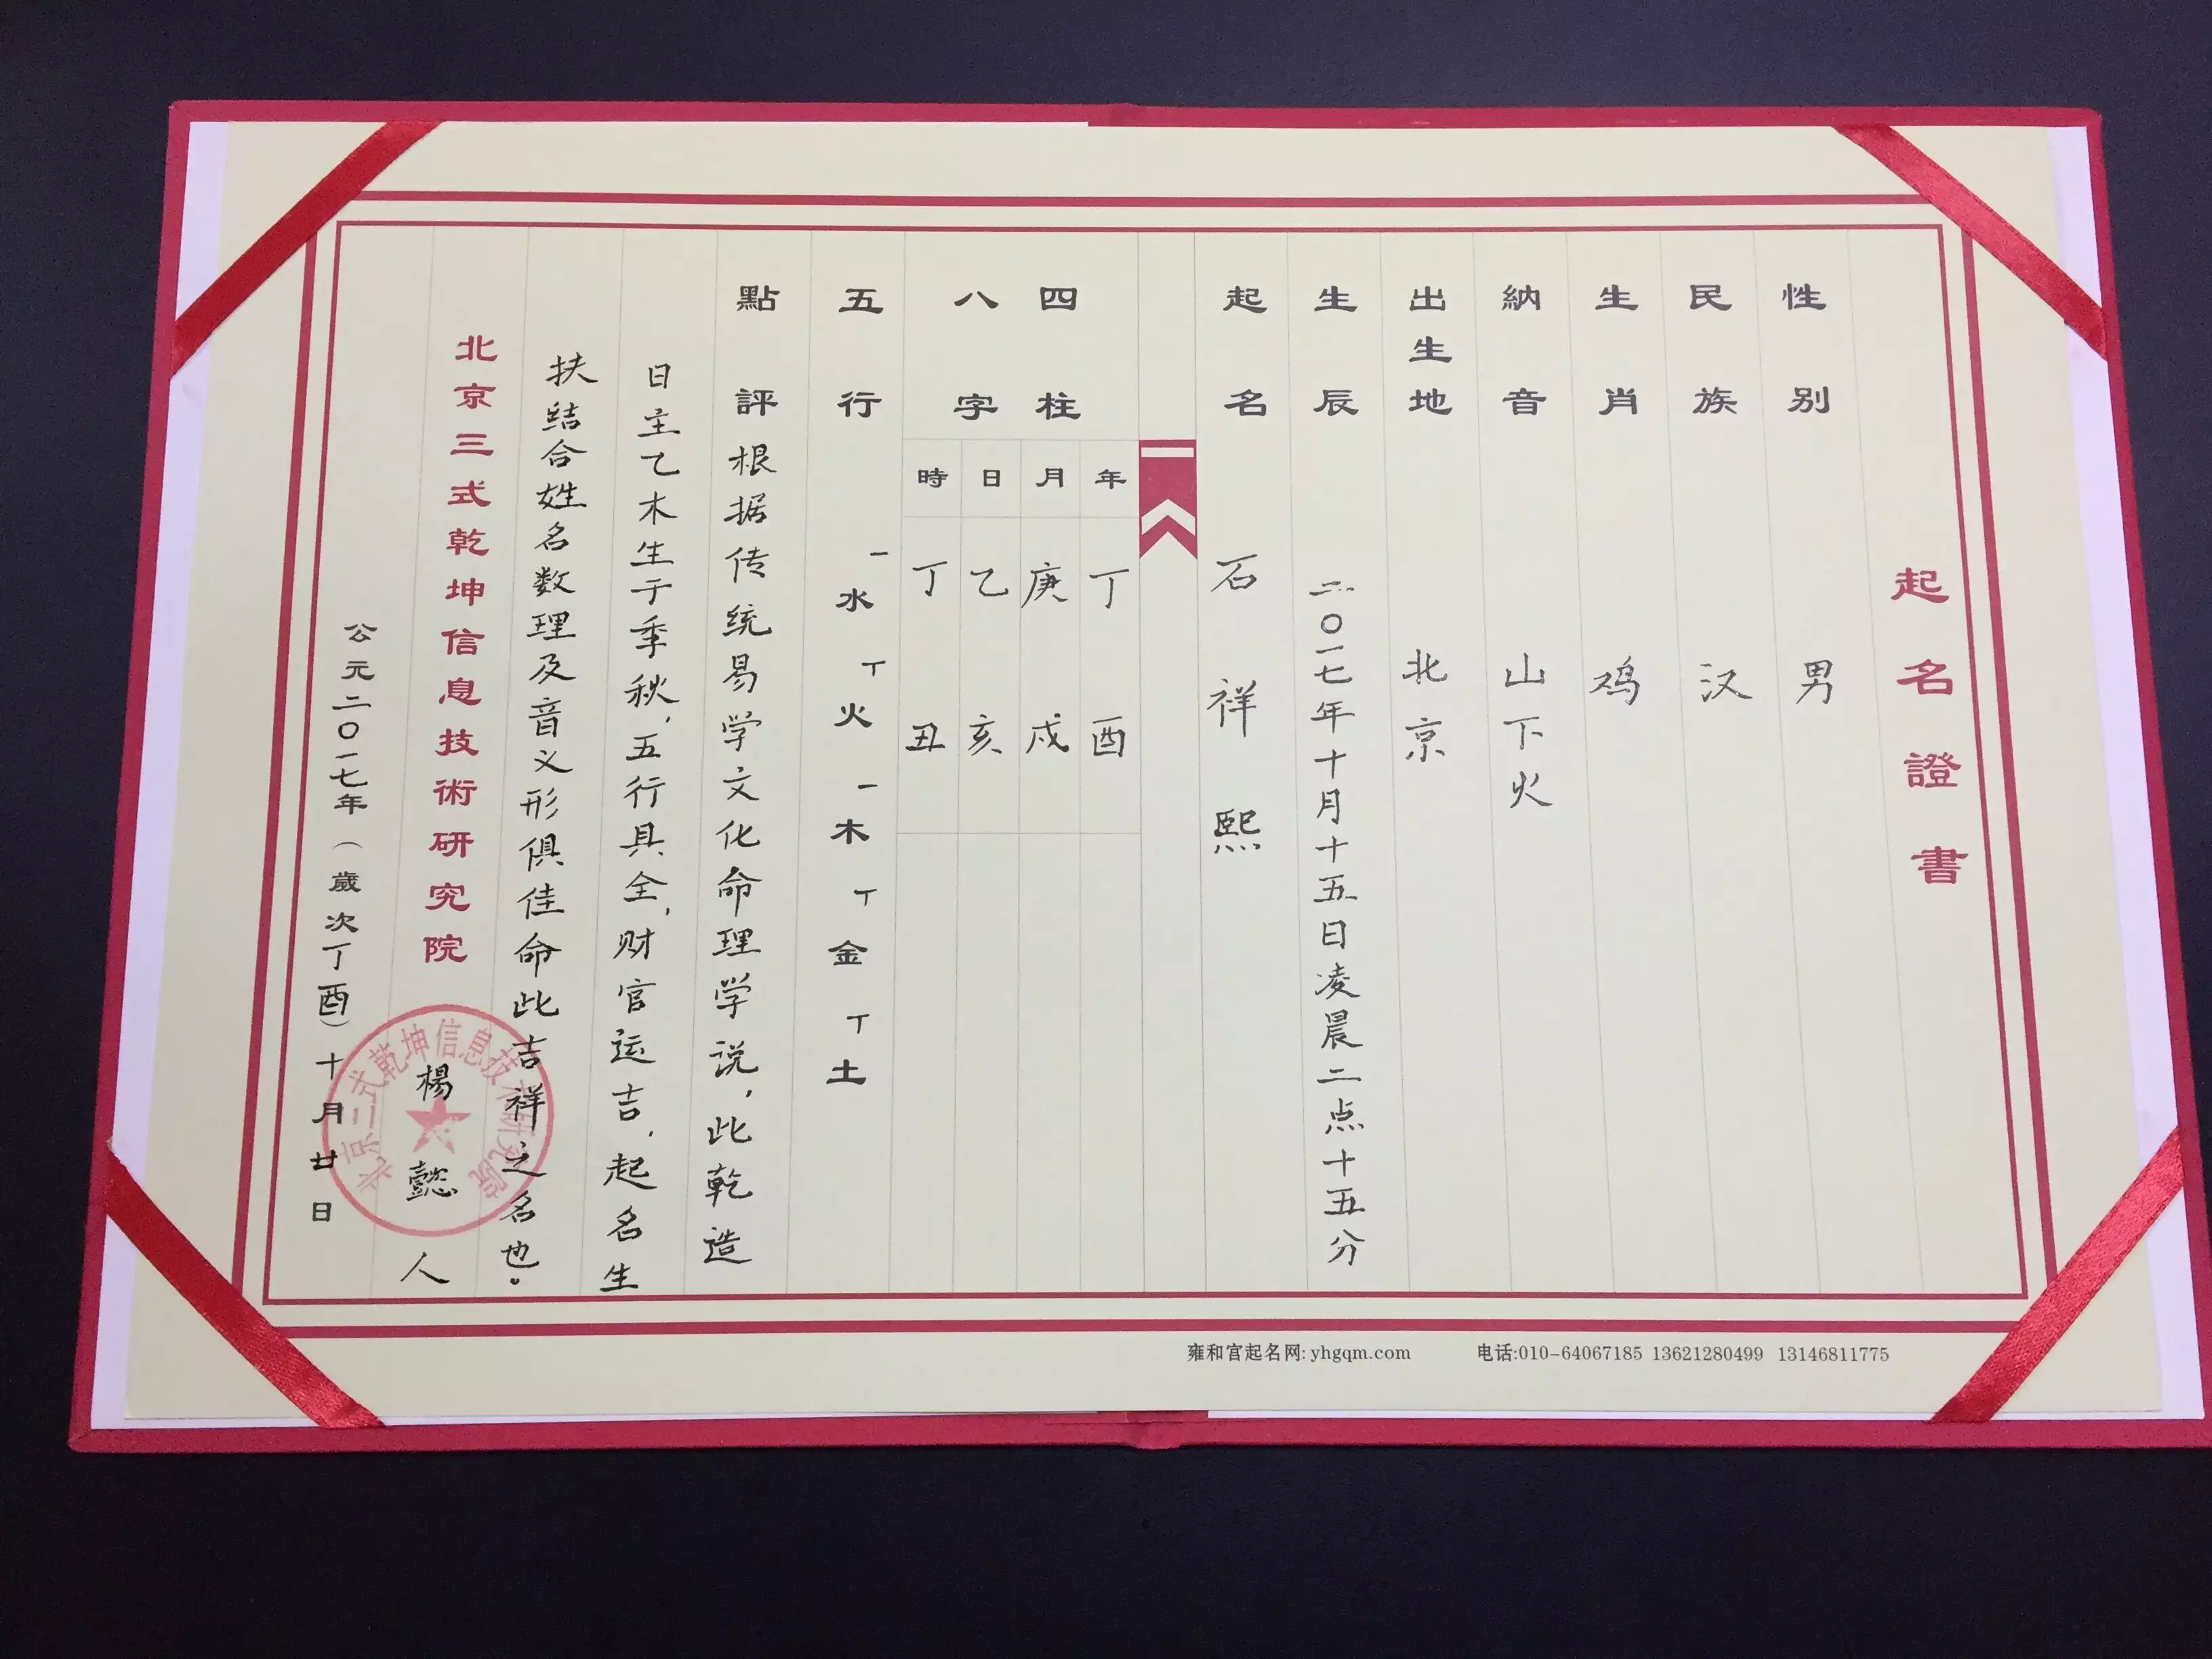 起名證書
性别 男
民族 汉
生肖 鸡
納音 山下火
出生地 北京
生辰 二〇一七年十月十五日凌晨二点十五分
起名 石祥熙
四柱
八字
年 丁酉
月 庚戌
日 乙亥
時 丁丑
五行 一水 丅火 一木 丅金 丅土
點評 根据传统易学文化命理学说，此乾造
日主乙木生于季秋，五行具全，财官运吉，起名生
扶结合姓名数理及音义形俱佳命此吉祥之名也。
北京三式乾坤信息技術研究院 楊懿人
公元二〇一七年（歲次丁酉）十月廿日
北京三式乾坤信息技术研究院
雍和宫起名网: yhgqm.com 电话:010-64067185 13621280499 13146811775